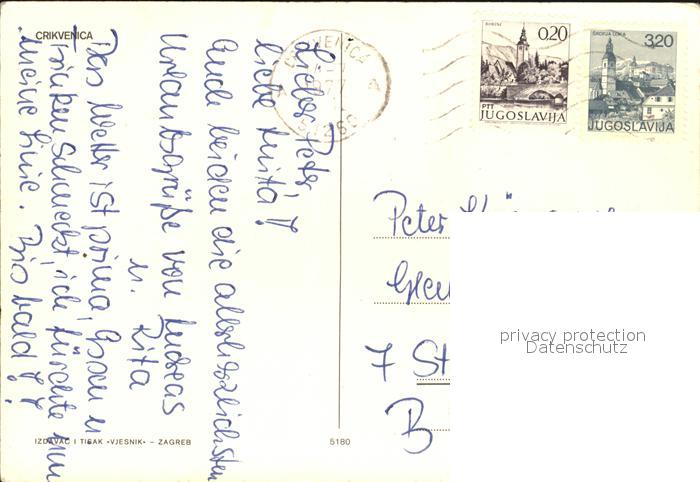 CRIKVENICA
Lieber Peter,
liebe Anita!
Euch beiden die allerherzlichsten
Urlaubsgrüße von Andreas
u. Rita
Das Wetter ist prima, Essen u.
Trinken schmeckt, ich fürchte um
meine Linie. Bis bald!!
IZDAVAČ I TISAK »VJESNIK« – ZAGREB
5180
CRIKVENICA
51260
BOHINJ
0,20
PTT
JUGOSLAVIJA
ŠKOFJA LOKA
3,20
JUGOSLAVIJA
Peter
7 St
privacy protection
Datenschutz